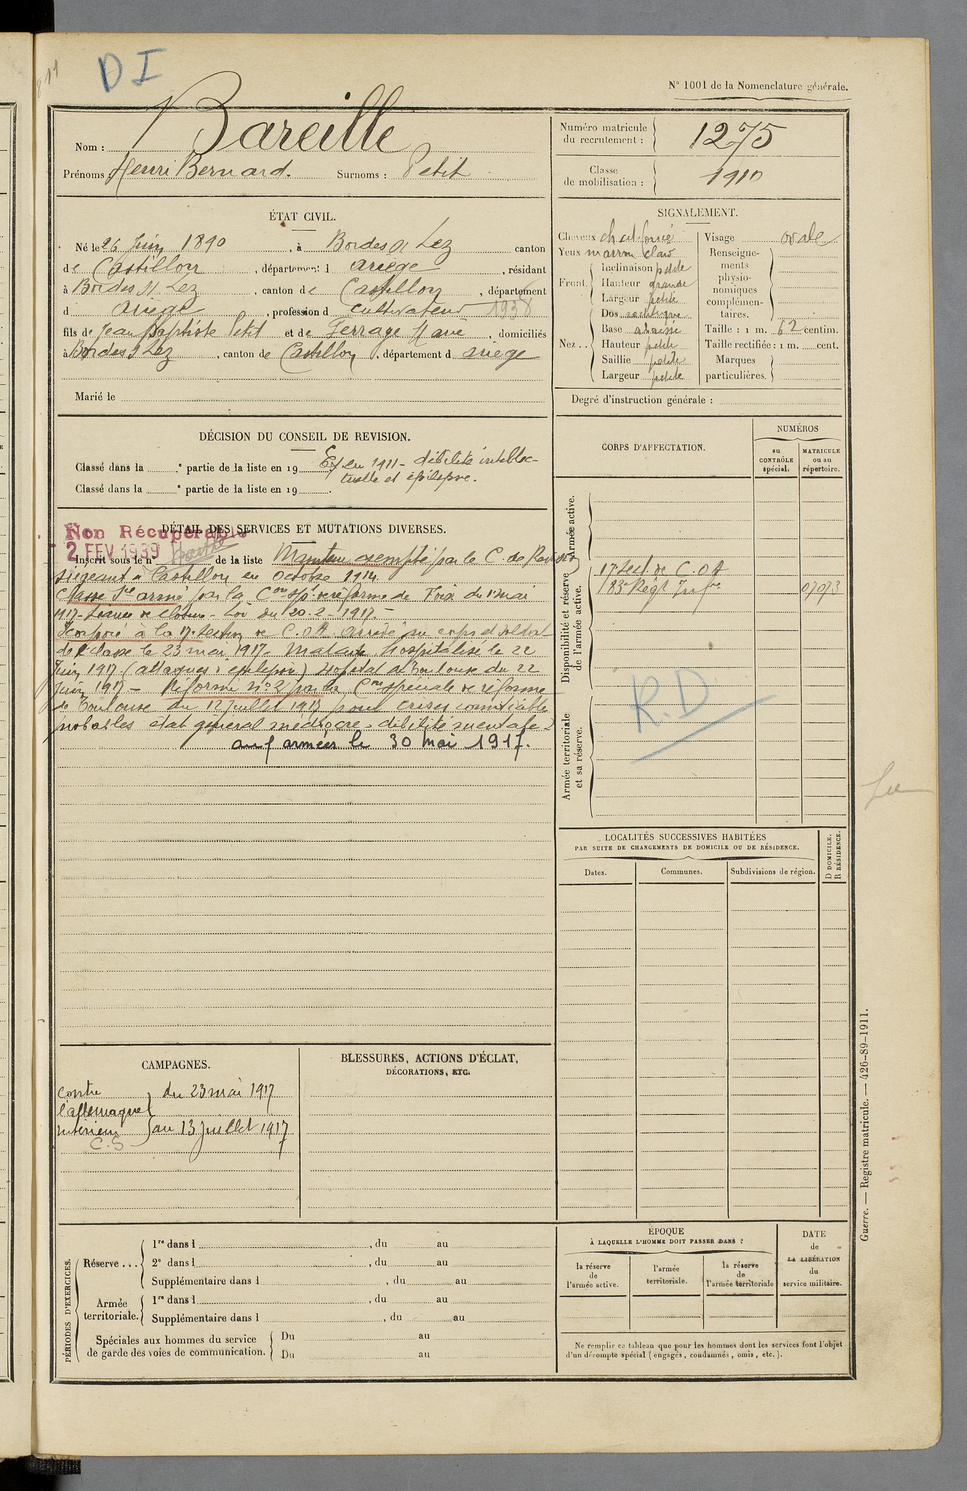 D I
N° 1001 de la Nomenclature générale.
Nom : Bareille
Prénoms : Henri Bernard. Surnoms : Petit
Numéro matricule du recrutement : 1275
Classe de mobilisation : 1910
ÉTAT CIVIL.
Né le 26 Juin 1890, à Bordes s/ Lez canton
de Castillon, département d ariège, résidant
à Bordes s/ Lez, canton de Castillon, département
d ariège, profession d cultivateur 1938
fils de Jean Baptiste Petit et de Ferrage Marie, domiciliés
à Bordes s/ Lez, canton de Castillon, département d ariège
Marié le
SIGNALEMENT.
Cheveux chat. foncé Visage ovale
Yeux marron clair
Front. Inclinaison petite
Hauteur grande
Largeur petite
Nez.. Dos
Base abaissé
Hauteur petite
Saillie petite
Largeur petite
Renseignements physionomiques complémentaires.
Taille : 1 m. 62 centim.
Taille rectifiée : 1 m. cent.
Marques particulières.
Degré d'instruction générale :
DÉCISION DU CONSEIL DE REVISION.
Classé dans la e partie de la liste en 19 Ex en 1911 - débilité intellec-
tuelle et épilepsie.
Classé dans la e partie de la liste en 19 .
DÉTAIL DES SERVICES ET MUTATIONS DIVERSES.
Non Récupérable
2 FEV 1939
Inscrit sous le n° de la liste Maintenu exempté par le C. de Révision
siégeant à Castillon en octobre 1914.
Classé Sce armé par la Con spé de réforme de Foix du 1er mai
1917 - séance de clôture - Loi du 20-2-1917.-
Incorporé à la 17e Section de C.O.A. arrivé au corps et soldat
de 2e classe le 23 mai 1917. Malade hospitalisé le 22
Juin 1917 (attaques d'épilepsie) Hôpital de Toulouse du 22
Juin 1917 - Réformé n° 2 par la Con spéciale de réforme
de Toulouse du 12 Juillet 1917 pour crises comitiales
probables état général médiocre - débilité mentale -
aux armées le 30 mai 1917.
CORPS D'AFFECTATION.
NUMÉROS
au CONTRÔLE spécial.
MATRICULE ou au répertoire.
Armée active.
Disponibilité et réserve de l'armée active.
17 Sect. de C.O.A
83e Régt Infie 07073
R.D
Armée territoriale et sa réserve.
LOCALITÉS SUCCESSIVES HABITÉES
PAR SUITE DE CHANGEMENTS DE DOMICILE OU DE RÉSIDENCE.
Dates. Communes. Subdivisions de région. D DOMICILE. R RÉSIDENCE.
CAMPAGNES.
contre l'allemagne du 23 mai 1917
intérieur au 13 juillet 1917
C.S
BLESSURES, ACTIONS D'ÉCLAT,
DÉCORATIONS, ETC.
PÉRIODES D'EXERCICES.
Réserve ... 1re dans l , du au
2e dans l , du au
Supplémentaire dans l , du au
Armée territoriale. 1re dans l , du au
Supplémentaire dans l , du au
Spéciales aux hommes du service de garde des voies de communication. Du au
Du au
ÉPOQUE
À LAQUELLE L'HOMME DOIT PASSER DANS :
la réserve de l'armée active.
l'armée territoriale.
la réserve de l'armée territoriale
DATE de LA LIBÉRATION du service militaire.
Ne remplir ce tableau que pour les hommes dont les services font l'objet
d'un décompte spécial (engagés, condamnés, omis, etc.).
Guerre. — Registre matricule. — 426-89-1911.